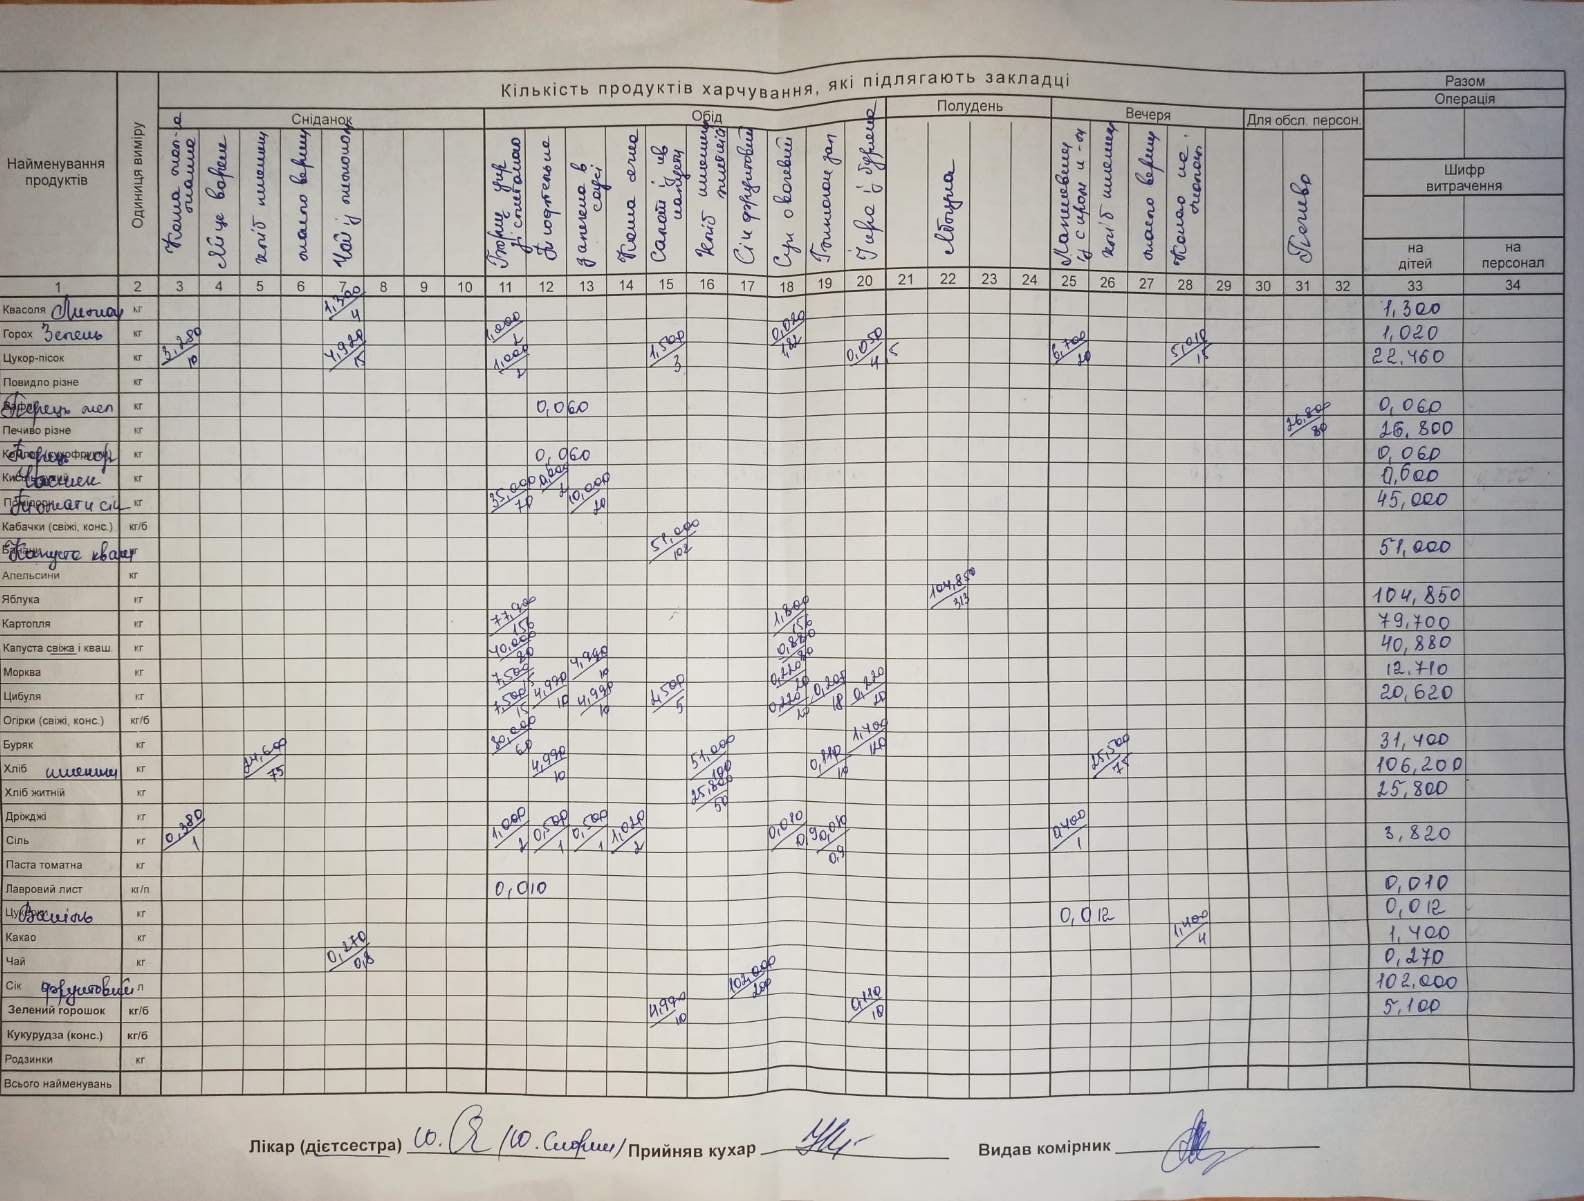 Кількість продуктів харчування, які підлягають закладці
Разом
Операція
Сніданок
Обід
Полудень
Вечеря
Для обсл. персон.
Найменування продуктів
Одиниця виміру
Шифр витрачення
на дітей
на персонал
Каша
Яйце варене
хліб
масло вершк
Чай з лимоном
Борщ укр зі сметаною
запечена в соусі
Каша ячна
Салат із кв капусти
Хліб пшенич житній
Сік фруктовий
Суп овочевий
Ікра з буряка
Яблука
Запіканка із сиром
хліб пшенич
масло вершк
Какао на молоці
Печиво
1 2 3 4 5 6 7 8 9 10 11 12 13 14 15 16 17 18 19 20 21 22 23 24 25 26 27 28 29 30 31 32 33 34
Квасоля Лимон кг 1,300/4 1,300
Горох Зелень кг 1,000 0,020 1,020
Цукор-пісок кг 3,280/10 4,920/15 1,000/2 1,500/3 0,050 6,700/20 5,010/15 22.460
Повидло різне кг
Перець мел кг 0,060 0,060
Печиво різне кг 26,800/80 26,800
Перець гор кг 0,060 0,060
Часник кг 0,600 0,600
Томати сік кг 35,000/70 10,000/20 45,000
Кабачки (свіжі, конс.) кг/б
Капуста кваш кг 51,000/102 51,000
Апельсини кг
Яблука кг 104,850/313 104,850
Картопля кг 77,900/156 1,800/156 79.700
Капуста свіжа і кваш. кг 40,000/80 0,880/80 40,880
Морква кг 7,500/15 4,990/10 0,220/20 12.710
Цибуля кг 7,500/15 4,990/10 4,990/10 2,500/5 0,220/20 0,200/18 0,220/20 20,620
Огірки (свіжі, конс.) кг/б
Буряк кг 30,000/60 1,400/120 31,400
Хліб пшенич кг 24,600/75 4,990/10 51,000/100 0,110/10 25,500/75 106,200
Хліб житній кг 25,800/50 25,800
Дріжджі кг
Сіль кг 0,380/1 1,000/2 0,500/1 0,500/1 1,020/2 0,010 0,010/0,9 0,400/1 3,820
Паста томатна кг
Лавровий лист кг/п 0,010 0,010
Ваніль кг 0,012 0,012
Какао кг 1,400/4 1,400
Чай кг 0,270/0,8 0,270
Сік фруктовий л 102,000/200 102,000
Зелений горошок кг/б 4,990/10 0,110/10 5,100
Кукурудза (конс.) кг/б
Родзинки кг
Всього найменувань
Лікар (дієтсестра) Прийняв кухар Видав комірник